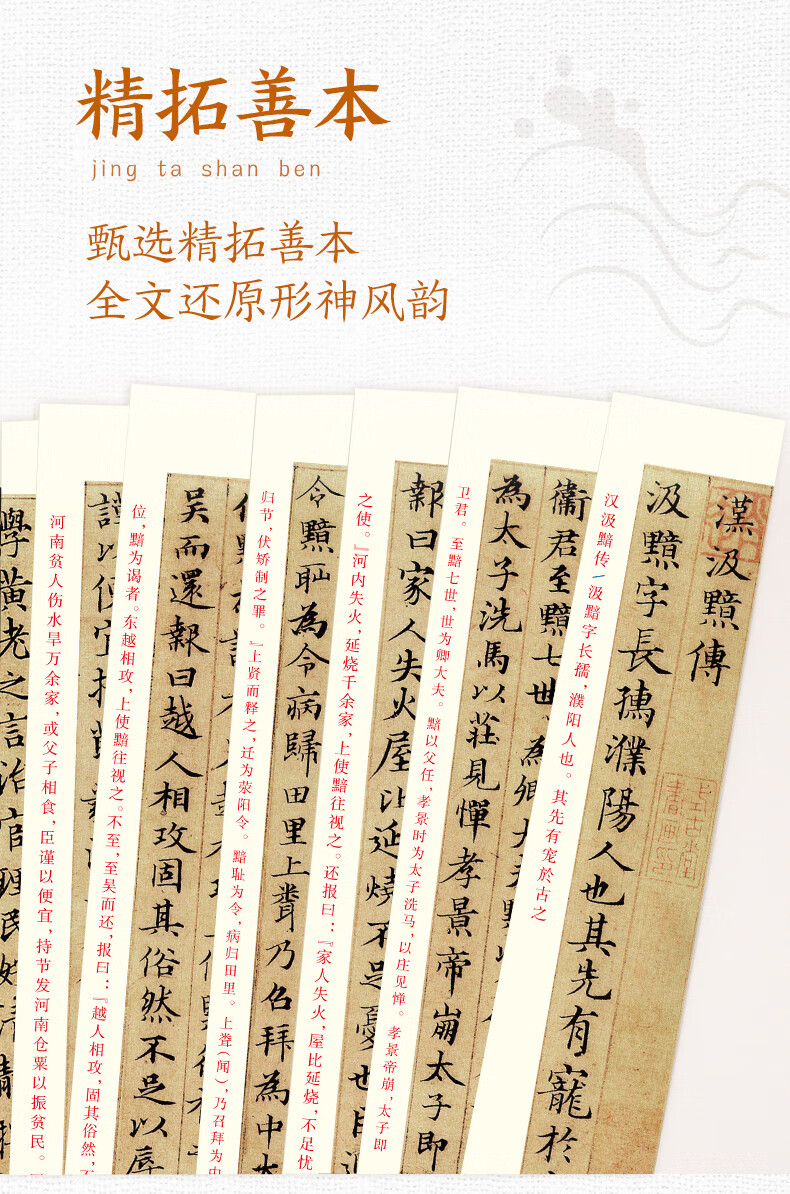 精拓善本
jing ta shan ben
甄选精拓善本
全文还原形神风韵
漢汲黯傳
汲黯字長孺濮陽人也其先有寵於
汉汲黯传一汲黯字长孺，濮阳人也。其先有宠於古之
衞君至黯七世為卿大夫黯以
為太子洗馬以莊見憚孝景帝崩太子即
卫君。至黯七世，世为卿大夫。黯以父任，孝景时为太子洗马，以庄见惮。孝景帝崩，太子即
報曰家人失火屋比延燒不足憂也臣過
之使。』河内失火，延烧千余家，上使黯往视之。还报曰：『家人失火，屋比延烧，不足忧
令黯耻為令病歸田里上聋乃召拜為中大
归节，伏矫制之罪。』上贤而释之，迁为荥阳令。黯耻为令，病归田里。上聋（闻），乃召拜为中
吴而還報曰越人相攻固其俗然不足以辱
位，黯为谒者。东越相攻，上使黯往视之。不至，至吴而还，报曰：『越人相攻，固其俗然，不
謹以便宜持
河南贫人伤水旱万余家，或父子相食，臣谨以便宜，持节发河南仓粟以振贫民。
學黄老之言治官理民好清靜